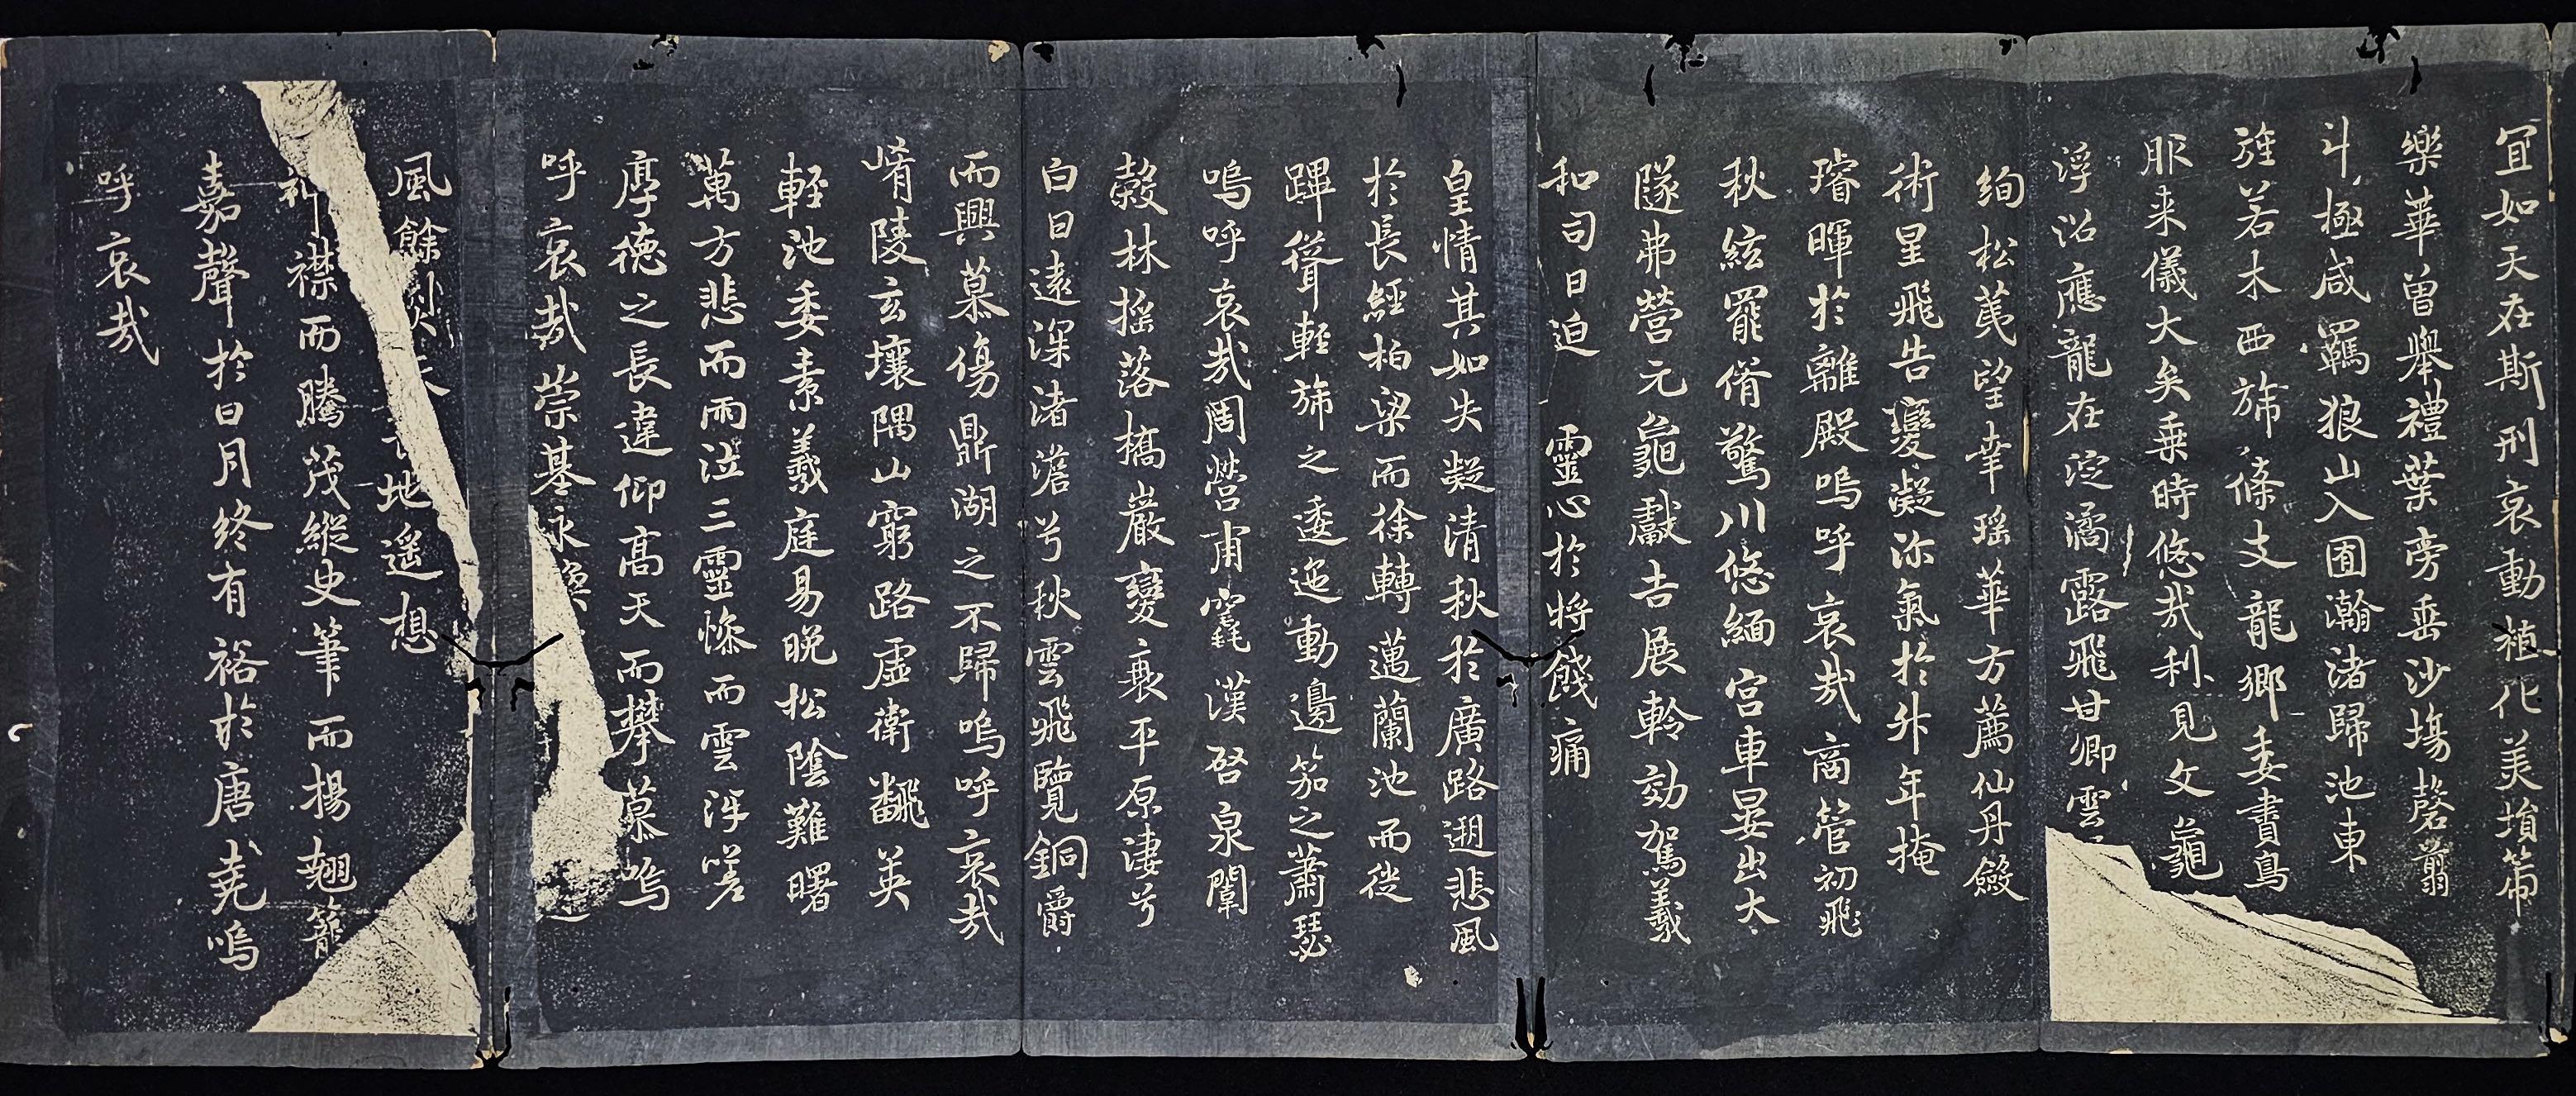 宜如天在斯刑哀動植化美墳箒
樂華曾舉禮葉旁垂沙塲磬翦
斗極咸羈狼山入囿瀚渚歸池東
旌若木西旆條支龍鄉委書鳥
服来儀大矣乗時悠哉利見文龜
浮沼應龍在淀潏露飛甘卿雲
絢松萐望幸瑶華方薦仙丹斂
術星飛告變凝沴氣於外年掩
璿暉於離殿嗚呼哀哉商管初飛
秋絃罷脩驚川悠緬宫車晏出大
隧弗營元龜獻吉展軨効駕羲
和司日迫靈心於將餞痛
皇情其如失凝清秋於廣路遡悲風
於長經柏梁而徐轉邁蘭池而從
蹕聳輕旆之逶迤動邊笳之蕭瑟
嗚呼哀哉閲營甫竁漢啓泉闈
穀林摇落橋巖變衰平原淒兮
白日遠深渚澹兮秋雲飛覽銅爵
而興慕傷鼎湖之不歸嗚呼哀哉
崤陵玄壤隅山窮路虚衛飜英
輕池委素羲庭易晚松陰難曙
萬方悲而雨泣三靈慘而雲沍嗟
厚德之長違仰高天而攀慕嗚
呼哀哉崇基永
風餘烈天地遥想
神襟而騰茂縱史筆而揚翘籠
嘉聲於日月終有裕於唐堯嗚
呼哀哉